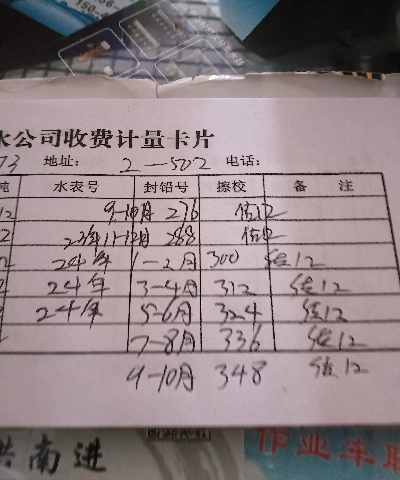 150
水公司收费计量卡片
73 地址: 2-502 电话:
吨 水表号 封铅号 擦校 备 注
12 9-10月 276 估12
2 23年11-12月 288 估12
24年 1-2月 300 估12
24年 3-4月 312 估12
24年 5-6月 324 估12
7-8月 336 估12
9-10月 348 估12
洪南进
作业车联